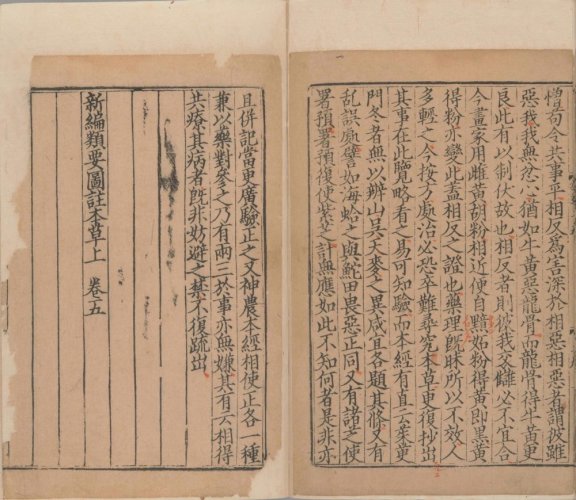 憎苟令共事乎相反爲害深於相惡相惡者謂彼雖
惡我我無忿心猶如牛黃惡龍骨而龍骨得牛黃更
良此有以制伏故也相反者則彼我交讎必不宜合
今畫家用雌黃胡粉相近便自黯妬粉得黃即黑黃
得粉亦變此盖相反之證也藥理旣昧所以不效人
多輕之今按方處治必恐卒難尋究本草更復抄出
其事在此覽略看之易可知驗而本經有直云茱萸
門冬者無以辨山吳天麥之異咸宜各題其條又有
亂誤處譬如海蛤之與鮀田畏惡正同又有諸芝使
署預署預復使紫芝計無應如此不知何者是非亦
且併記當更廣驗正之又神農本經相使正各一種
兼以藥對參之乃有兩三於事亦無嫌其有云相得
共療其病者旣非妨避之禁不復疏出
新編類要圖註本草上 卷五